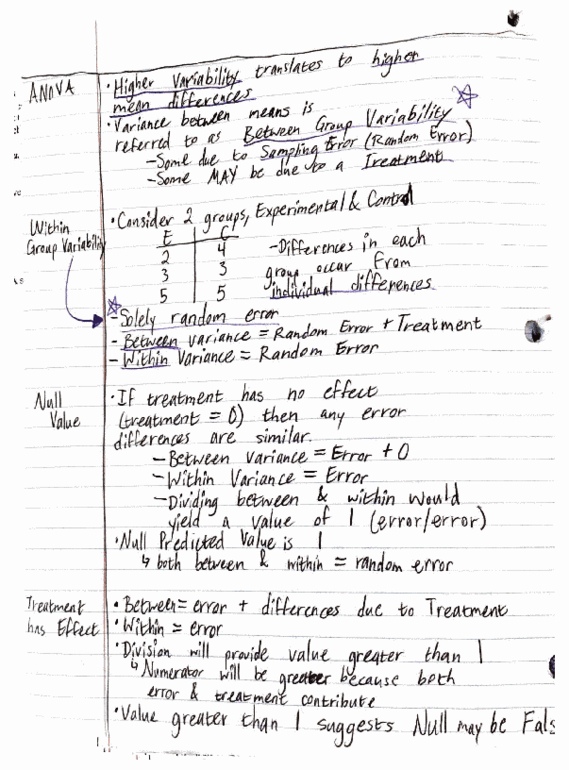 ANOVA
• Higher Variability translates to higher
mean differences
• Variance between means is
referred to as Between Group Variability
- Some due to Sampling Error (Random Error)
- Some MAY be due to a Treatment
Within
Group Variability
• Consider 2 groups, Experimental & Control
E C
2 4
3 3
5 5
- Differences in each
group occur from
individual differences
- Solely random error
- Between variance = Random Error + Treatment
- Within Variance = Random Error
Null
Value
• If treatment has no effect
(treatment = 0) then any error
differences are similar.
- Between Variance = Error + 0
- Within Variance = Error
- Dividing between & within would
yield a value of 1 (error/error)
• Null Predicted Value is 1
↳ both between & within = random error
Treatment
has Effect
• Between = error + differences due to Treatment
• Within = error
• Division will provide value greater than 1
↳ Numerator will be greater because both
error & treatment contribute
• Value greater than 1 suggests Null may be Fals